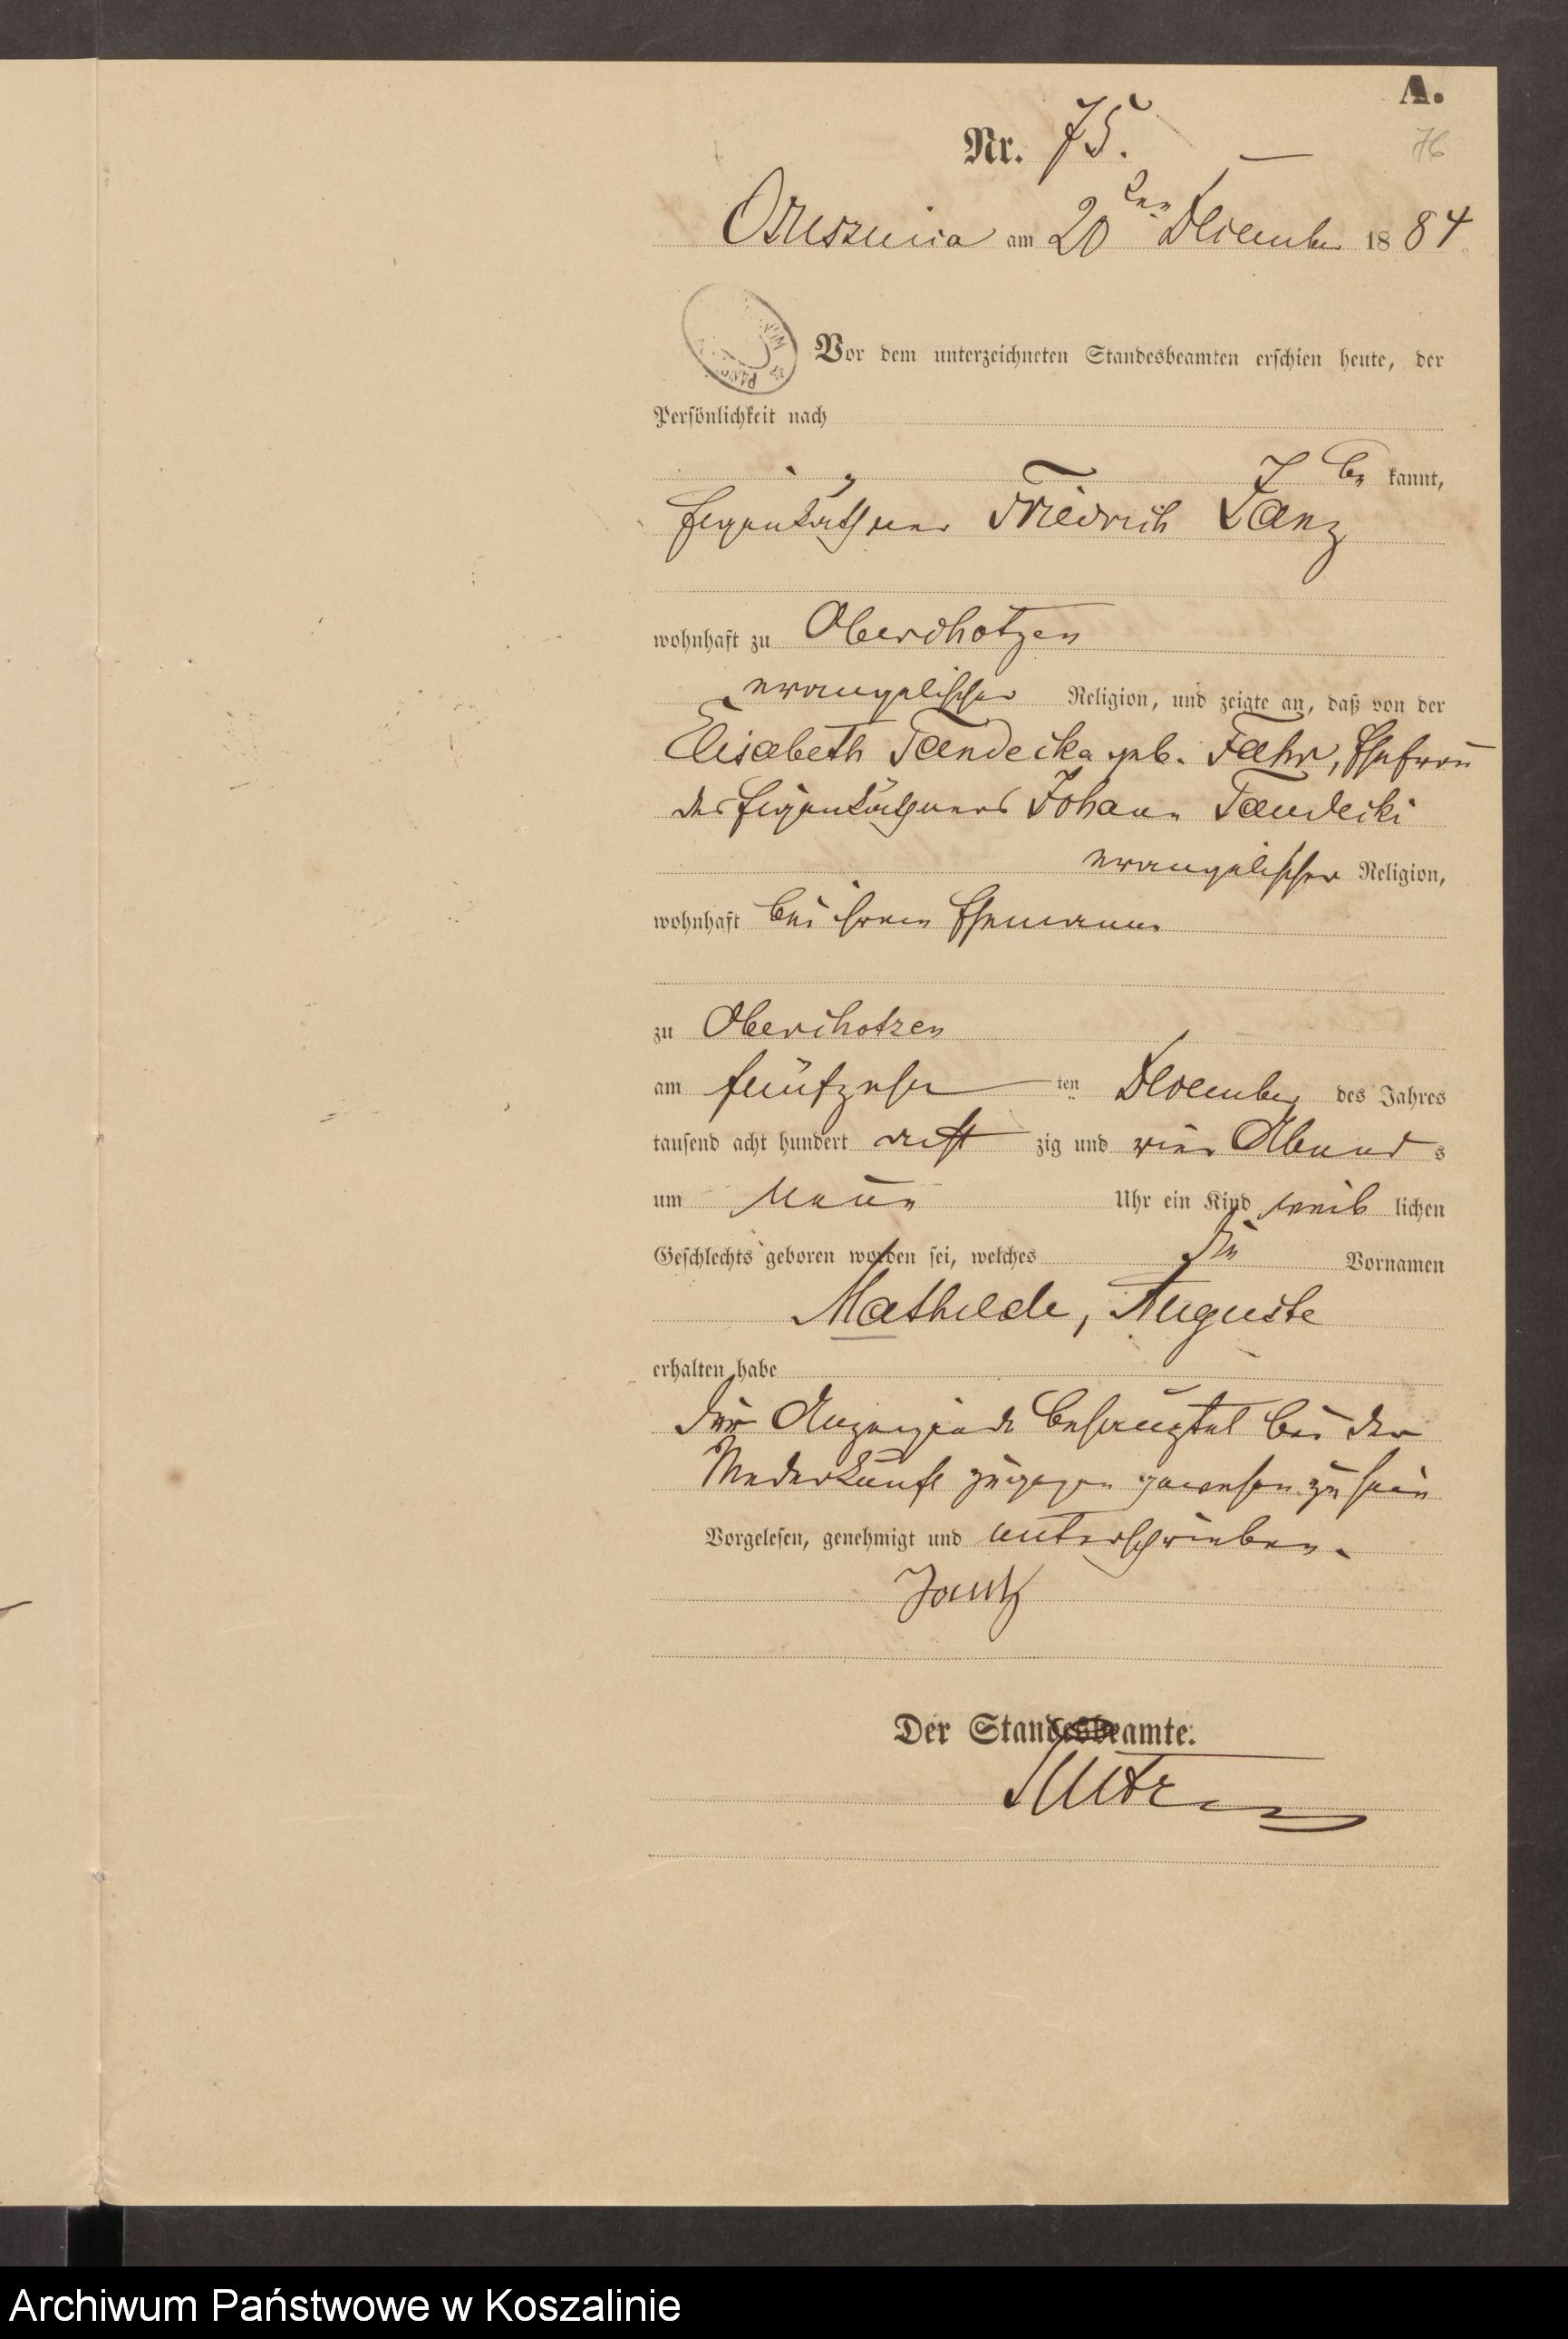 A.
Nr. 75.
76
Osusznica am 20ten December 1884
Vor dem unterzeichneten Standesbeamten erschien heute, der
Persönlichkeit nach
be kannt,
Eigenkäthner Friedrich Janz
wohnhaft zu Oberchotzen
evangelischer Religion, und zeigte an, daß von der
Elisabeth Tandecka geb. Fahr, Ehefrau
des Eigenkäthners Johann Tandecki
evangelischer Religion,
wohnhaft bei ihrem Ehemann
zu Oberchotzen
am fünfzehn ten December des Jahres
tausend acht hundert acht zig und vier Abend s
um neun Uhr ein Kind weib lichen
Geschlechts geboren worden sei, welches die Vornamen
Mathilde, Auguste
erhalten habe
Der Anzeigende behauptet bei der
Niederkunft zugegen gewesen zu sein
Vorgelesen, genehmigt und unterschrieben.
Jantz
Der Standesbeamte.
Archiwum Państwowe w Koszalinie